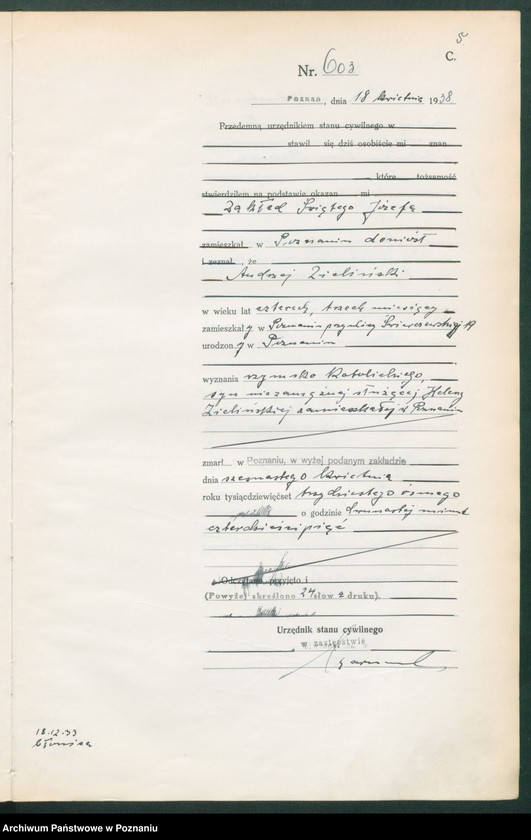 5
C.
Nr. 603
Poznań, dnia 18 kwietnia 1938
Przedemną urzędnikiem stanu cywilnego w
stawił się dziś osobiście mi znan
które tożsamość
stwierdziłem na podstawie okazan mi
Zakład Świętego Józefa
zamieszkał w Poznaniu doniósł
i zeznał, że
Andrzej Zieliński
w wieku lat czterech, trzech miesięcy
zamieszkały w Poznaniu przy ulicy 19
urodzony w Poznaniu
wyznania rzymsko katolickiego,
syn niezamężnej służącej Heleny
Zielińskiej zamieszkałej w Poznaniu
zmarł w Poznaniu, w wyżej podanym zakładzie
dnia szesnastego kwietnia
roku tysiącdziewięćset trzydziestego ósmego
o godzinie dwunastej minut
czterdzieścipięć
Odczytano, przyjęto i
(Powyżej skreślono 24 słów z druku).
Urzędnik stanu cywilnego
w zastępstwie
18.12.33
Archiwum Państwowe w Poznaniu